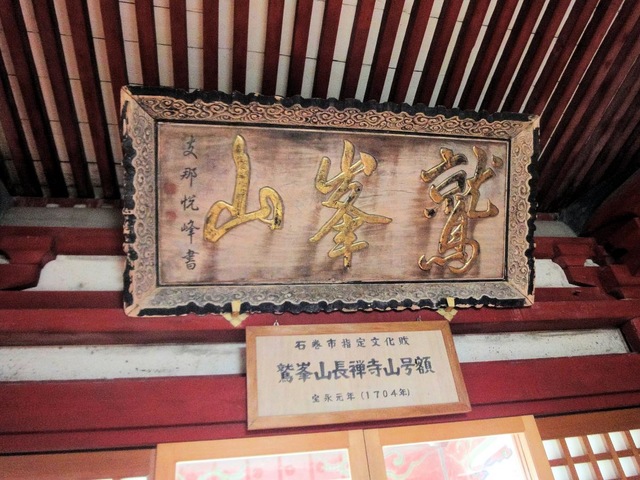 鷲峯山
支那悦峰書
石巻市指定文化財
鷲峯山長禅寺山号額
宝永元年(1704年)